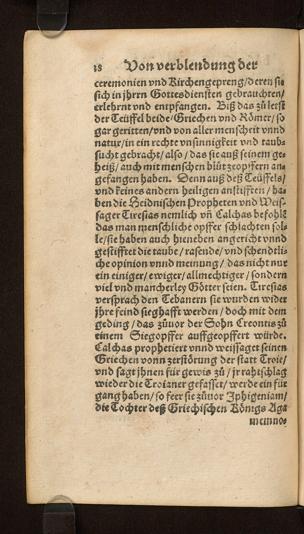 18 Von verblendung der
ceremonien vnd Kirchengepreng/deren sie
sich in jhrn Gottesdiensten gebrauchten/
erlehrnt vnd entpfangen. Biß das zů letst
der Teüffel beide/Griechen vnd Römer/so
gar geritten/vnd von aller menscheit vnnd
natur/in ein rechte vnsinnigkeit vnd taub-
sucht gebracht/also/das sie auß seinem ge-
heiß/auch mit menschen blůtzeopfern an-
gefangen haben. Denn auß deß Teüffels/
vnd keines andern heiligen anstifften/ha-
ben die Heidnischen Propheten vnd Weis-
sager Tiresias nemlich vñ Calchas befohlẽ
das man menschliche opffer schlachten sol-
le/sie haben auch hieneben angericht vnnd
gestifftet die taube/rasende/vnd schendtli-
che opinion vnnd meinung/das nicht nur
ein einiger/ewiger/allmechtiger/sondern
viel vnd mancherley Götter seien. Tiresias
versprach den Tebanern sie wurden wider
jhre feind sieghafft werden/doch mit dem
geding/das zůuor der Sohn Creontis zů
einem Siegopffer auffgeopffert würde.
Calchas prophetiert vnnd weissaget seinen
Griechen vonn zerstörung der statt Troie/
vnd sagt jhnen für gewis zů/jr rahtschlag
wieder die Troianer gefasset/werde ein für
gang haben/so feer sie zůuor Iphigeniam/
die Tochter deß Griechischen Königs Aga
memno-